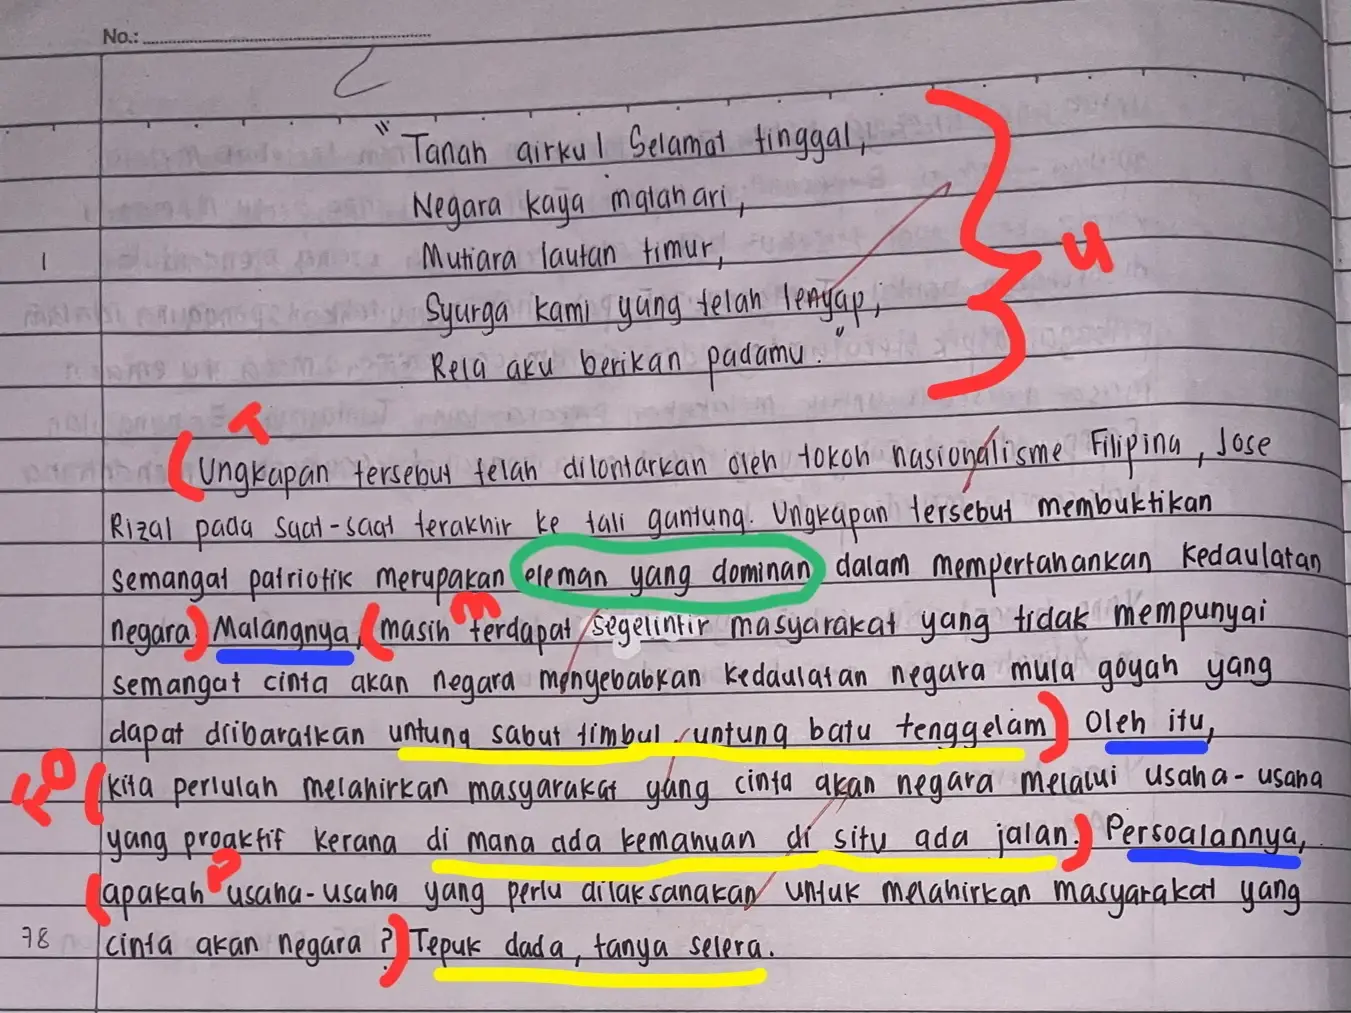 No.:
"Tanah airku! Selamat tinggal,
Negara kaya matahari,
Mutiara lautan timur,
1
U
Syurga kami yang telah lenyap,
Rela aku berikan padamu."
T
(Ungkapan tersebut telah dilontarkan oleh tokoh nasionalisme Filipina, Jose
Rizal pada saat-saat terakhir ke tali gantung. Ungkapan tersebut membuktikan
semangat patriotik merupakan eleman yang dominan dalam mempertahankan kedaulatan
M
negara) Malangnya, (masih terdapat segelintir masyarakat yang tidak mempunyai
semangat cinta akan negara menyebabkan kedaulatan negara mula goyah yang
dapat diibaratkan untung sabut timbul, untung batu tenggelam) Oleh itu,
(kita perlulah melahirkan masyarakat yang cinta akan negara melalui usaha-usaha
yang proaktif kerana di mana ada kemahuan di situ ada jalan.) Persoalannya,
P
(apakah usaha-usaha yang perlu dilaksanakan untuk melahirkan masyarakat yang
78
cinta akan negara?) Tepuk dada, tanya selera.